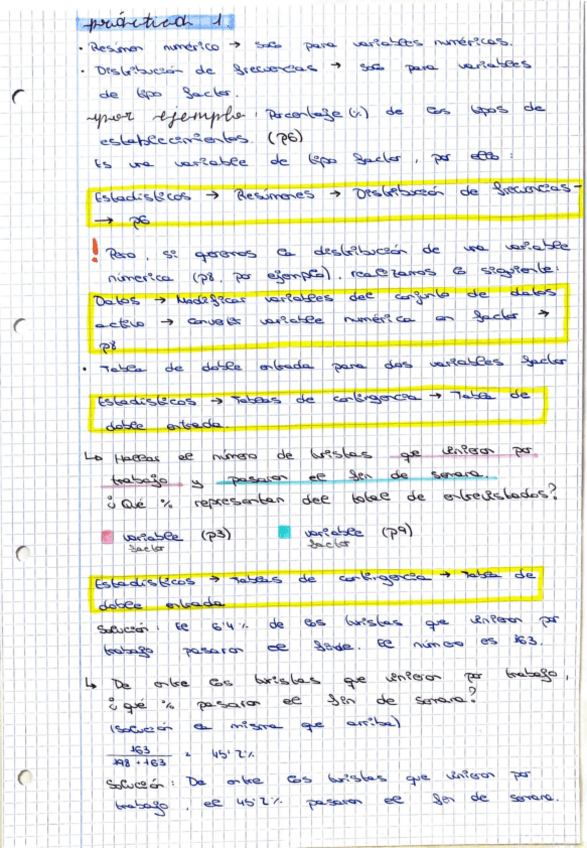 práctica 1.
· Resumen numérico → solo para variables numéricas.
· Distribución de frecuencias → solo para variables
de tipo factor.
por ejemplo: Porcentaje (%) de los tipos de
establecimientos. (p6)
Es una variable de tipo factor, por ello:
Estadísticos → Resúmenes → Distribución de frecuencias -
→ p6
! Pero, si queremos la distribución de una variable
númerica (p8, por ejemplo), realizamos lo siguiente:
Datos → Modificar variables del conjunto de datos
activo → convertir variable numérica en factor →
p8
· Tabla de doble entrada para dos variables factor
Estadísticos → Tablas de contingencia → Tabla de
doble entrada.
↳ Hallar el número de turistas que vinieron por
trabajo y pasaron el fin de semana.
¿Qué % representan del total de entrevistados?
variable (p3) variable (p9)
factor factor
Estadísticos → Tablas de contingencia → Tabla de
doble entrada
Solución: El 6'4% de los turistas que vinieron por
trabajo pasaron el finde. El número es 163.
↳ De entre los turistas que vinieron por trabajo,
¿qué % pasaron el fin de semana?
(solución la misma que arriba)
163
198 + 163 = 45'2%
Solución: De entre los turistas que vinieron por
trabajo, el 45'2% pasaron el fin de semana.